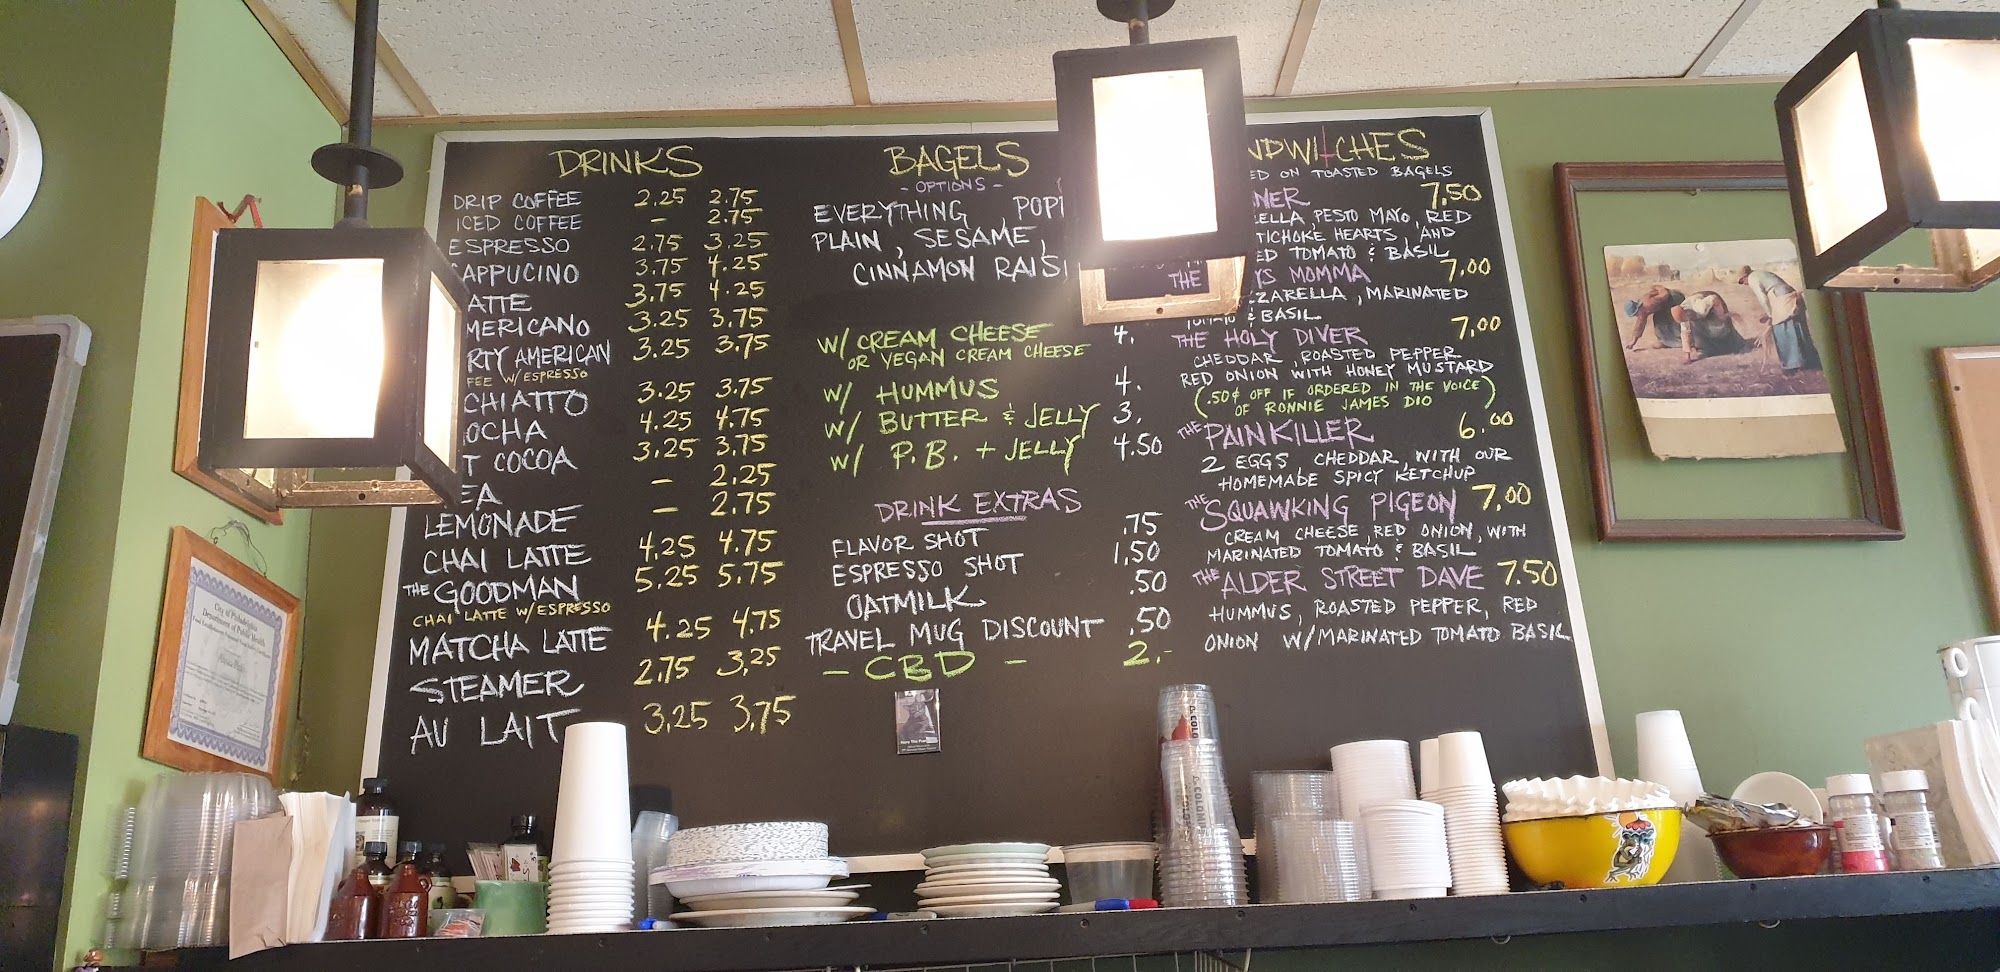 DRINKS
DRIP COFFEE 2.25 2.75
ICED COFFEE – 2.75
ESPRESSO 2.75 3.25
CAPPUCINO 3.75 4.25
ATTE 3.75 4.25
MERICANO 3.25 3.75
RTY AMERICAN 3.25 3.75
FEE W/ESPRESSO
CHIATTO 3.25 3.75
OCHA 4.25 4.75
T COCOA 3.25 3.75
EA – 2.25
LEMONADE – 2.75
CHAI LATTE 4.25 4.75
THE GOODMAN 5.25 5.75
CHAI LATTE W/ESPRESSO
MATCHA LATTE 4.25 4.75
STEAMER 2.75 3.25
AU LAIT 3.25 3.75
BAGELS
- OPTIONS -
EVERYTHING, POP
PLAIN, SESAME,
CINNAMON RAISI
W/ CREAM CHEESE 4.
OR VEGAN CREAM CHEESE
W/ HUMMUS 4.
W/ BUTTER & JELLY 3.
W/ P.B. + JELLY 4.50
DRINK EXTRAS
FLAVOR SHOT .75
ESPRESSO SHOT 1.50
OATMILK .50
TRAVEL MUG DISCOUNT .50
- CBD - 2.-
NDWITCHES
ED ON TOASTED BAGELS
NER 7.50
ELLA, PESTO MAYO, RED
TICHOKE HEARTS, AND
ED TOMATO & BASIL
THE YS MOMMA 7.00
ZZARELLA, MARINATED
TOMATO & BASIL
THE HOLY DIVER 7.00
CHEDDAR, ROASTED PEPPER
RED ONION WITH HONEY MUSTARD
(.50¢ OFF IF ORDERED IN THE VOICE
OF RONNIE JAMES DIO)
THE PAINKILLER 6.00
2 EGGS, CHEDDAR, WITH OUR
HOMEMADE SPICY KETCHUP
THE SQUAWKING PIGEON 7.00
CREAM CHEESE, RED ONION, WITH
MARINATED TOMATO & BASIL
THE ALDER STREET DAVE 7.50
HUMMUS, ROASTED PEPPER, RED
ONION W/MARINATED TOMATO BASIL
City of Philadelphia
Department of Public Health